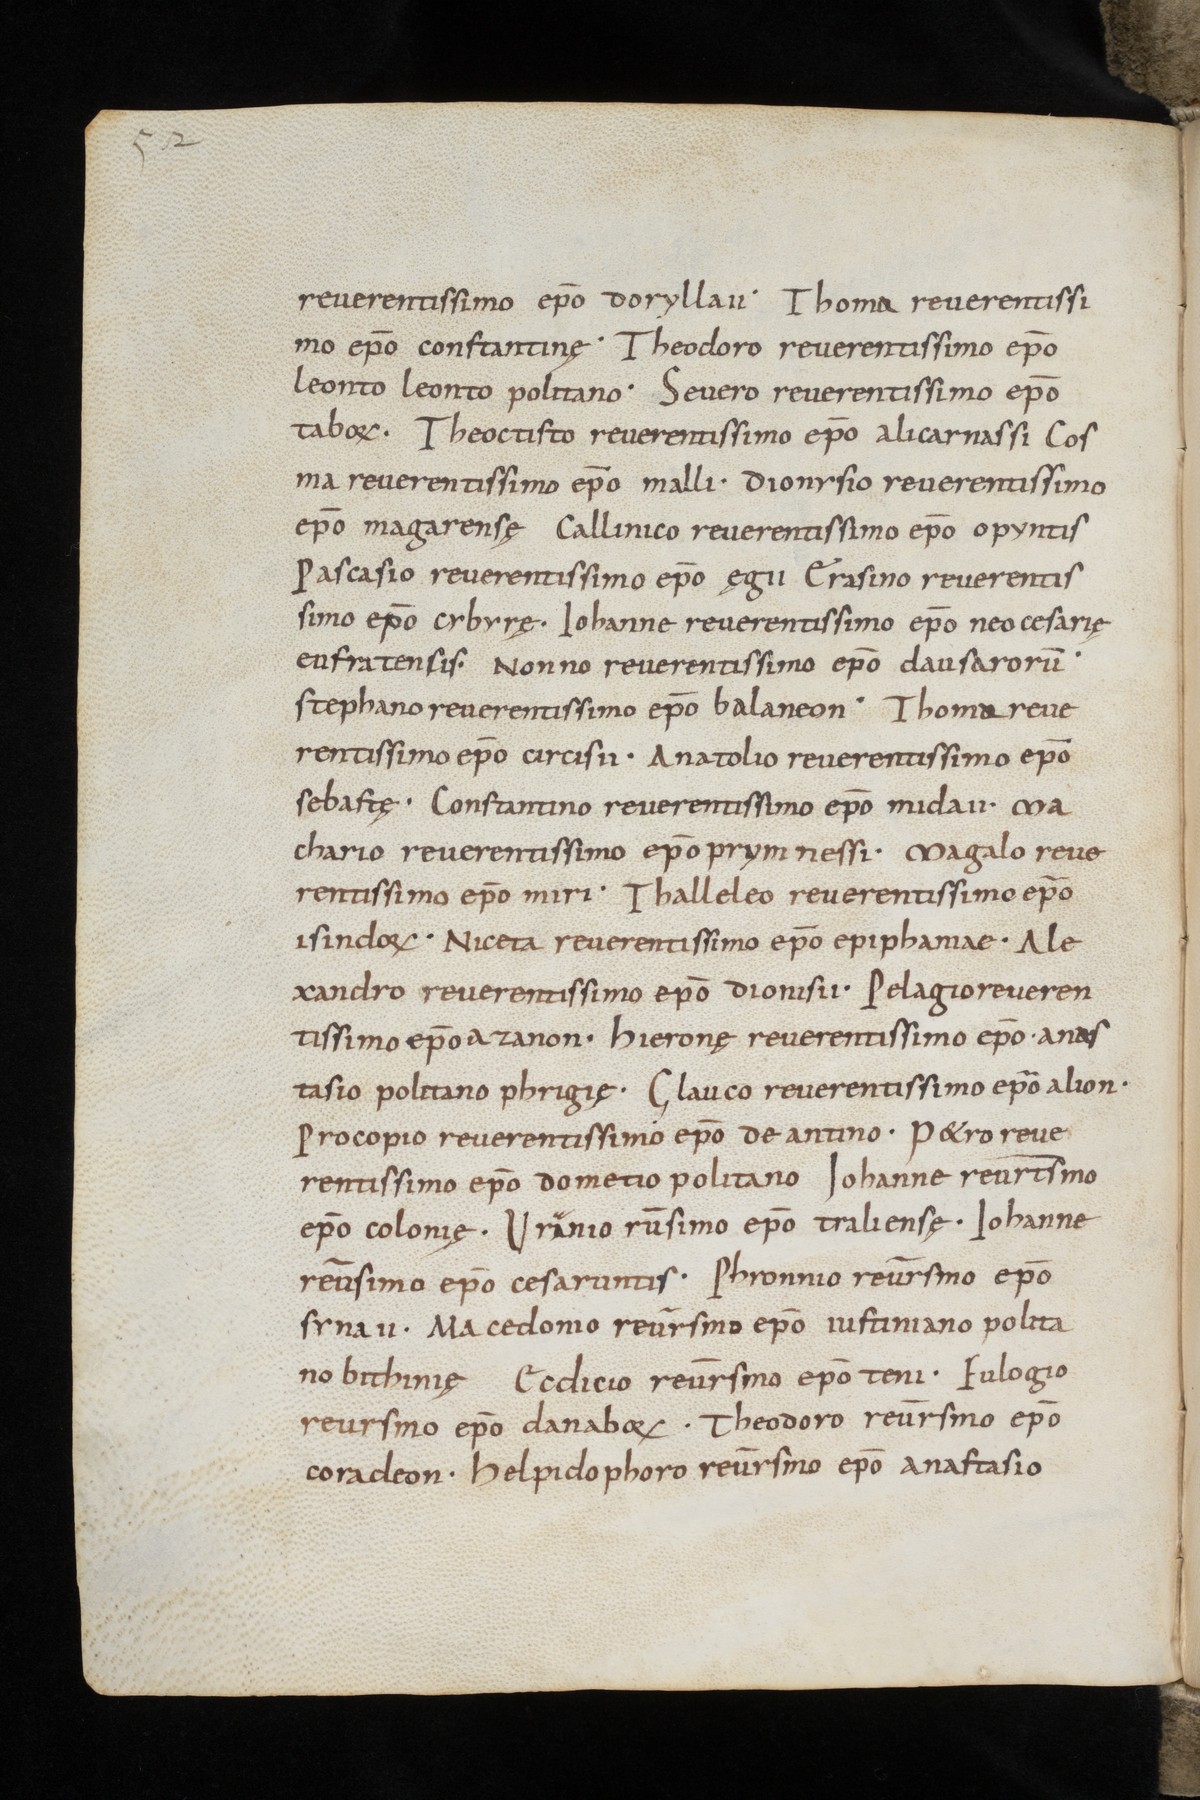 52
reuerentissimo ep̄o doryllaii· Thoma reuerentissi
mo ep̄o constantinę· Theodoro reuerentissimo ep̄o
leonto leonto politano· Seuero reuerentissimo ep̄o
taboꝝ. Theoctisto reuerentissimo ep̄o alicarnassi Cos
ma reuerentissimo ep̄o malli· Dionysio reuerentissimo
ep̄o magarensę Callinico reuerentissimo ep̄o opyntis
Pascasio reuerentissimo ep̄o ęgii Erasino reuerentis
simo ep̄o cybyrę· Iohanne reuerentissimo ep̄o neocesarię
eufratensis· Nonno reuerentissimo ep̄o dausarorū·
stephano reuerentissimo ep̄o balaneon· Thoma reue
rentissimo ep̄o circisii· Anatolio reuerentissimo ep̄o
sebastę· Constantino reuerentissimo ep̄o midaii· Ma
chario reuerentissimo ep̄o prymnessi· Magalo reue
rentissimo ep̄o miri· Thalleleo reuerentissimo ep̄o
isindoꝝ· Niceta reuerentissimo ep̄o epiphaniae· Ale
xandro reuerentissimo ep̄o dionisii· Pelagio reueren
tissimo ep̄o azanon· hieronę reuerentissimo ep̄o· anas
tasio politano phrigię· Glauco reuerentissimo ep̄o alion·
Procopio reuerentissimo ep̄o de antino· P&ro reue
rentissimo ep̄o dometio politano Iohanne reur̄tsmo
ep̄o colonię· Uranio rūsimo ep̄o traliensę· Iohanne
reūsimo ep̄o cesaruntis· Phronnio reur̄smo ep̄o
synaii· Macedonio reur̄smo ep̄o iustiniano polita
no bithinię Ecdicio reur̄smo ep̄o teni· Eulogio
reursmo ep̄o danaboꝝ· Theodoro reur̄smo ep̄o
coradeon· helpidophoro reur̄smo ep̄o anastasio